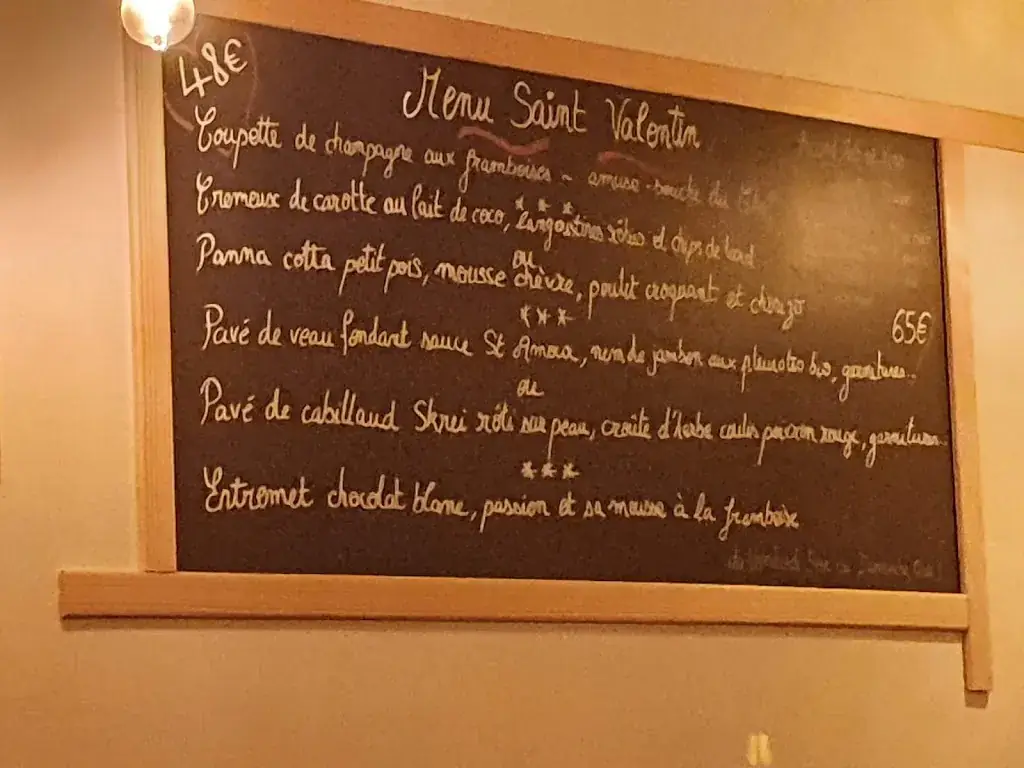 48€
Menu Saint Valentin
Coupette de champagne aux framboises - amuse-bouche du
***
Cremeux de carotte au lait de coco, langoustines rôties et chips de lard
ou
Panna cotta petit pois, mousse chèvre, poulet croquant et chorizo
***
65€
Pavé de veau fondant sauce St Amour, nem de jambon aux pleurotes bio, garnitures..
ou
Pavé de cabillaud Skrei rôti sur peau, croûte d'herbe coulis poivron rouge, garnitures..
***
Entremet chocolat blanc, passion et sa mousse à la framboise